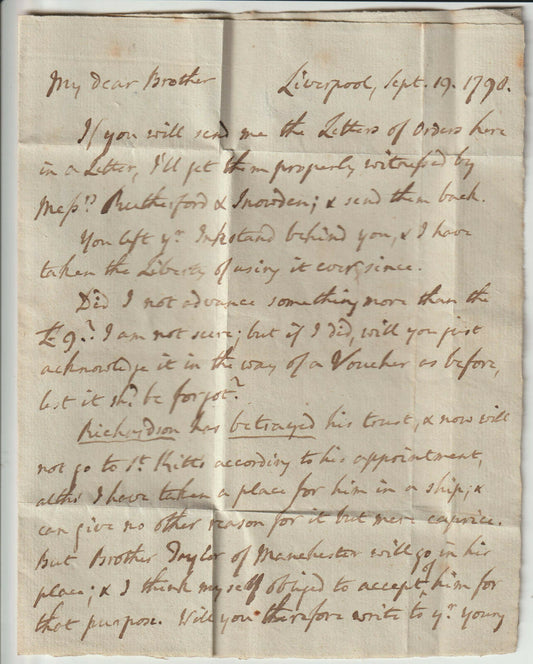 My dear Brother Liverpool, Sept. 19. 1790.
If you will send me the Letters of Orders here
in a Letter, I'll get them properly witnessed by
Messrs Rutherford & Snowden; & send them back.
You left yr Inkstand behind you, & I have
taken the Liberty of using it ever since.
Did I not advance something more than the
£9? I am not sure; but if I did, will you just
acknoledge it in the way of a Voucher as before,
lest it shd be forgot?
Richardson has betrayed his trust, & now will
not go to St Kitts according to his appointment,
altho I have taken a place for him in a ship; &
can give no other reason for it but mere caprice.
But Brother Taylor of Manchester will go in his
place; & I think myself obliged to accept of him for
that purpose. Will you therefore write to yr Young